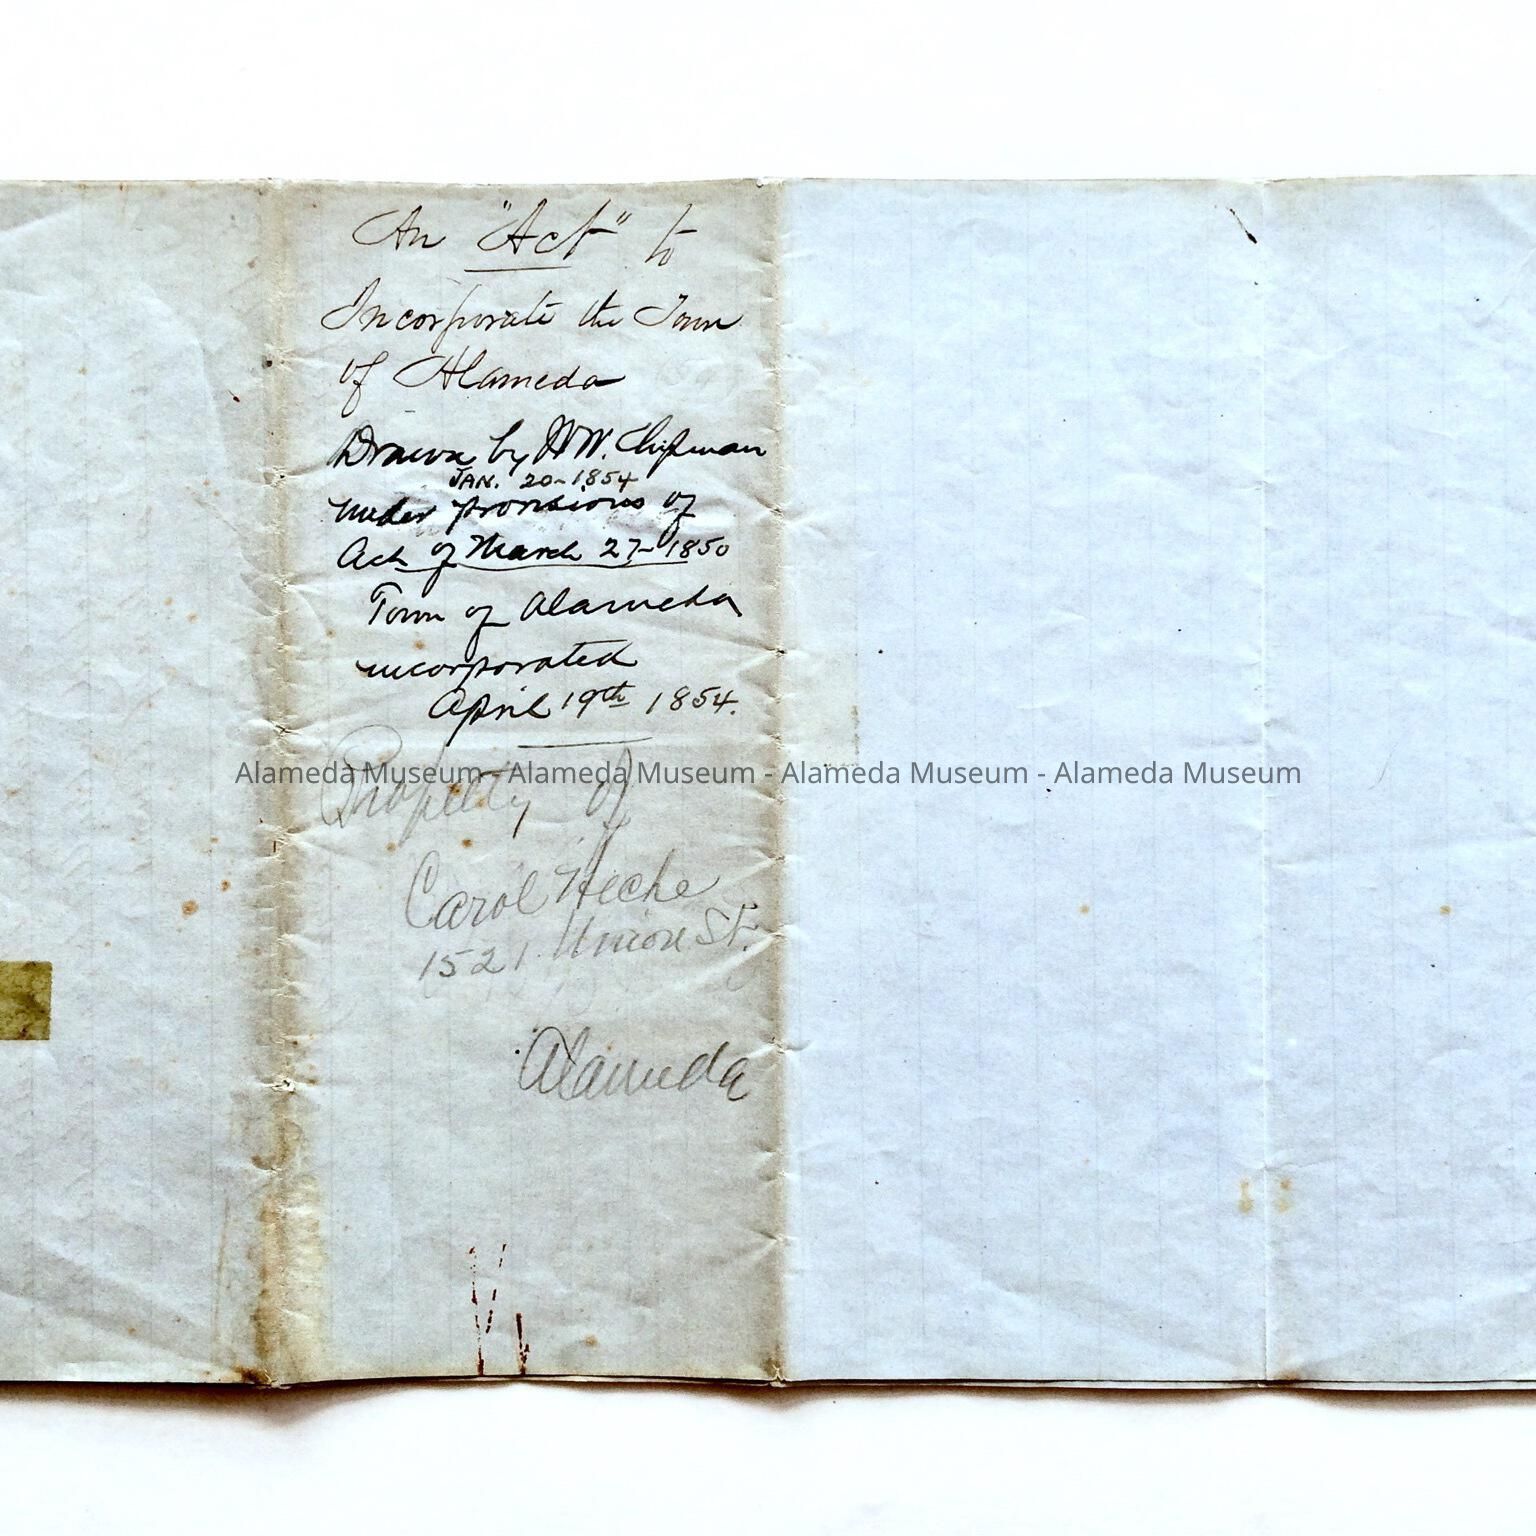 An "Act" to
Incorporate the Town
of Alameda
Drawn by W.W. Chipman
JAN. 20-1854
under provisions of
Act of March 27-1850
Town of Alameda
incorporated
April 19th 1854.
Property of
Alameda Museum - Alameda Museum - Alameda Museum - Alameda Museum
Carol Heche
1521 Union St.
Alameda